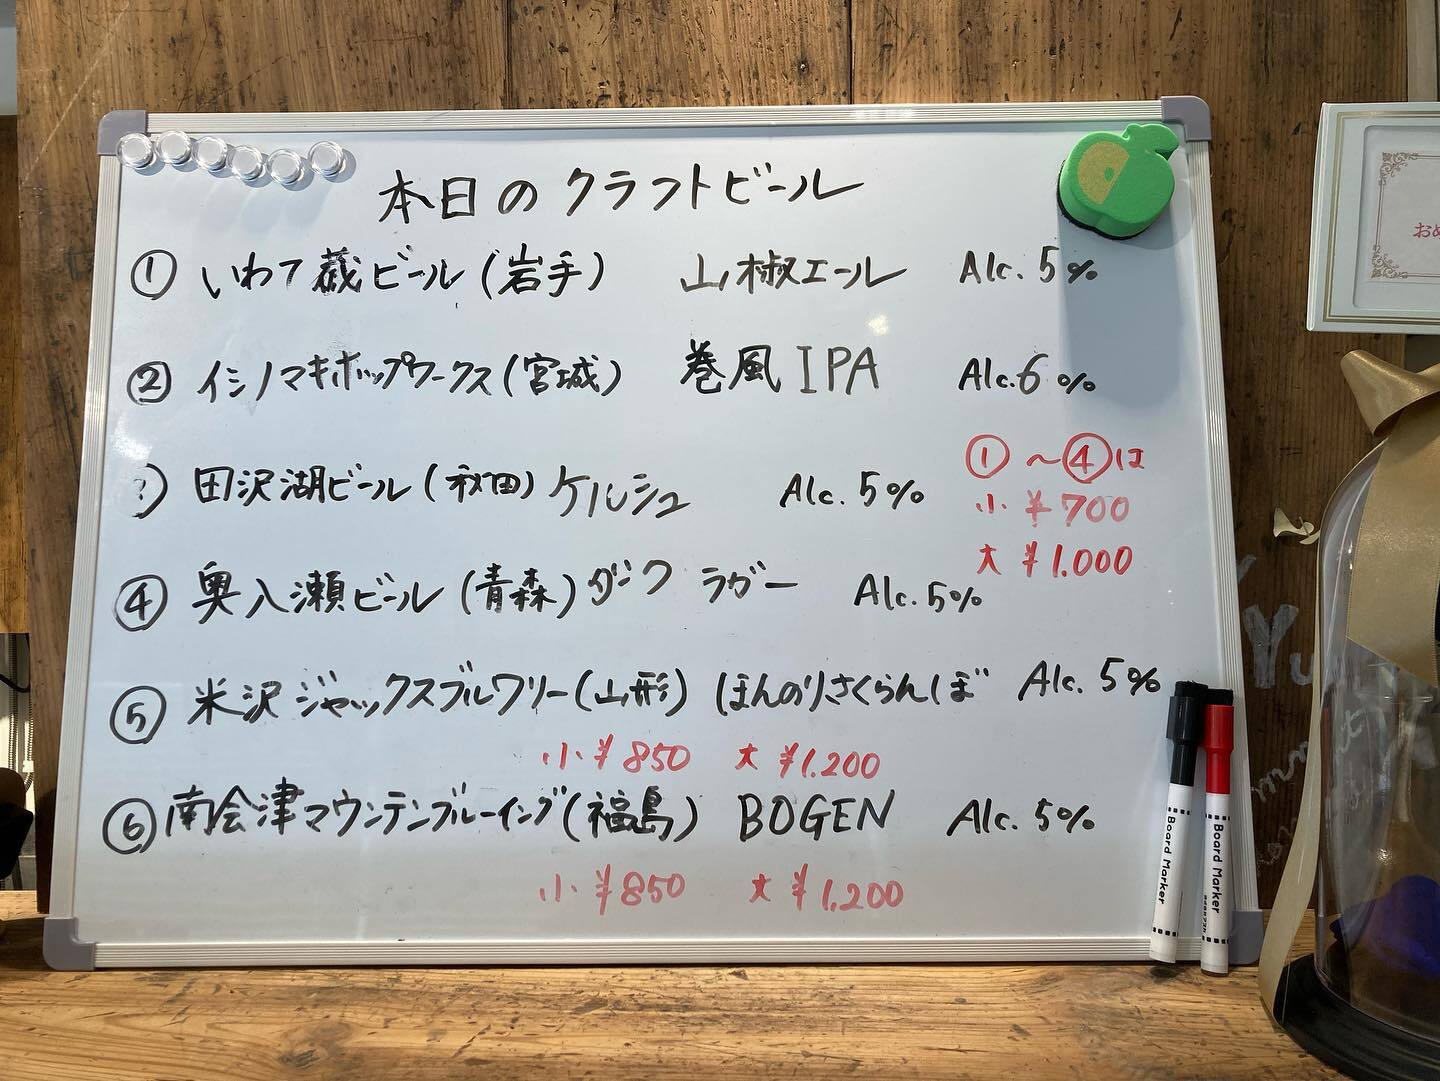 本日のクラフトビール
① いわて蔵ビール(岩手) 山椒エール Alc. 5%
② イシノマキホップワークス(宮城) 巻風 IPA Alc. 6%
①~④は
田沢湖ビール(秋田) ケルシュ Alc. 5%
小 ¥700
大 ¥1.000
④ 奥入瀬ビール(青森) ダークラガー Alc. 5%
⑤ 米沢ジャックスブルワリー(山形) ほんのりさくらんぼ Alc. 5%
小 ¥850 大 ¥1.200
⑥ 南会津マウンテンブルーイング(福島) BOGEN Alc. 5%
小 ¥850 大 ¥1,200
Board Marker
Board Marker